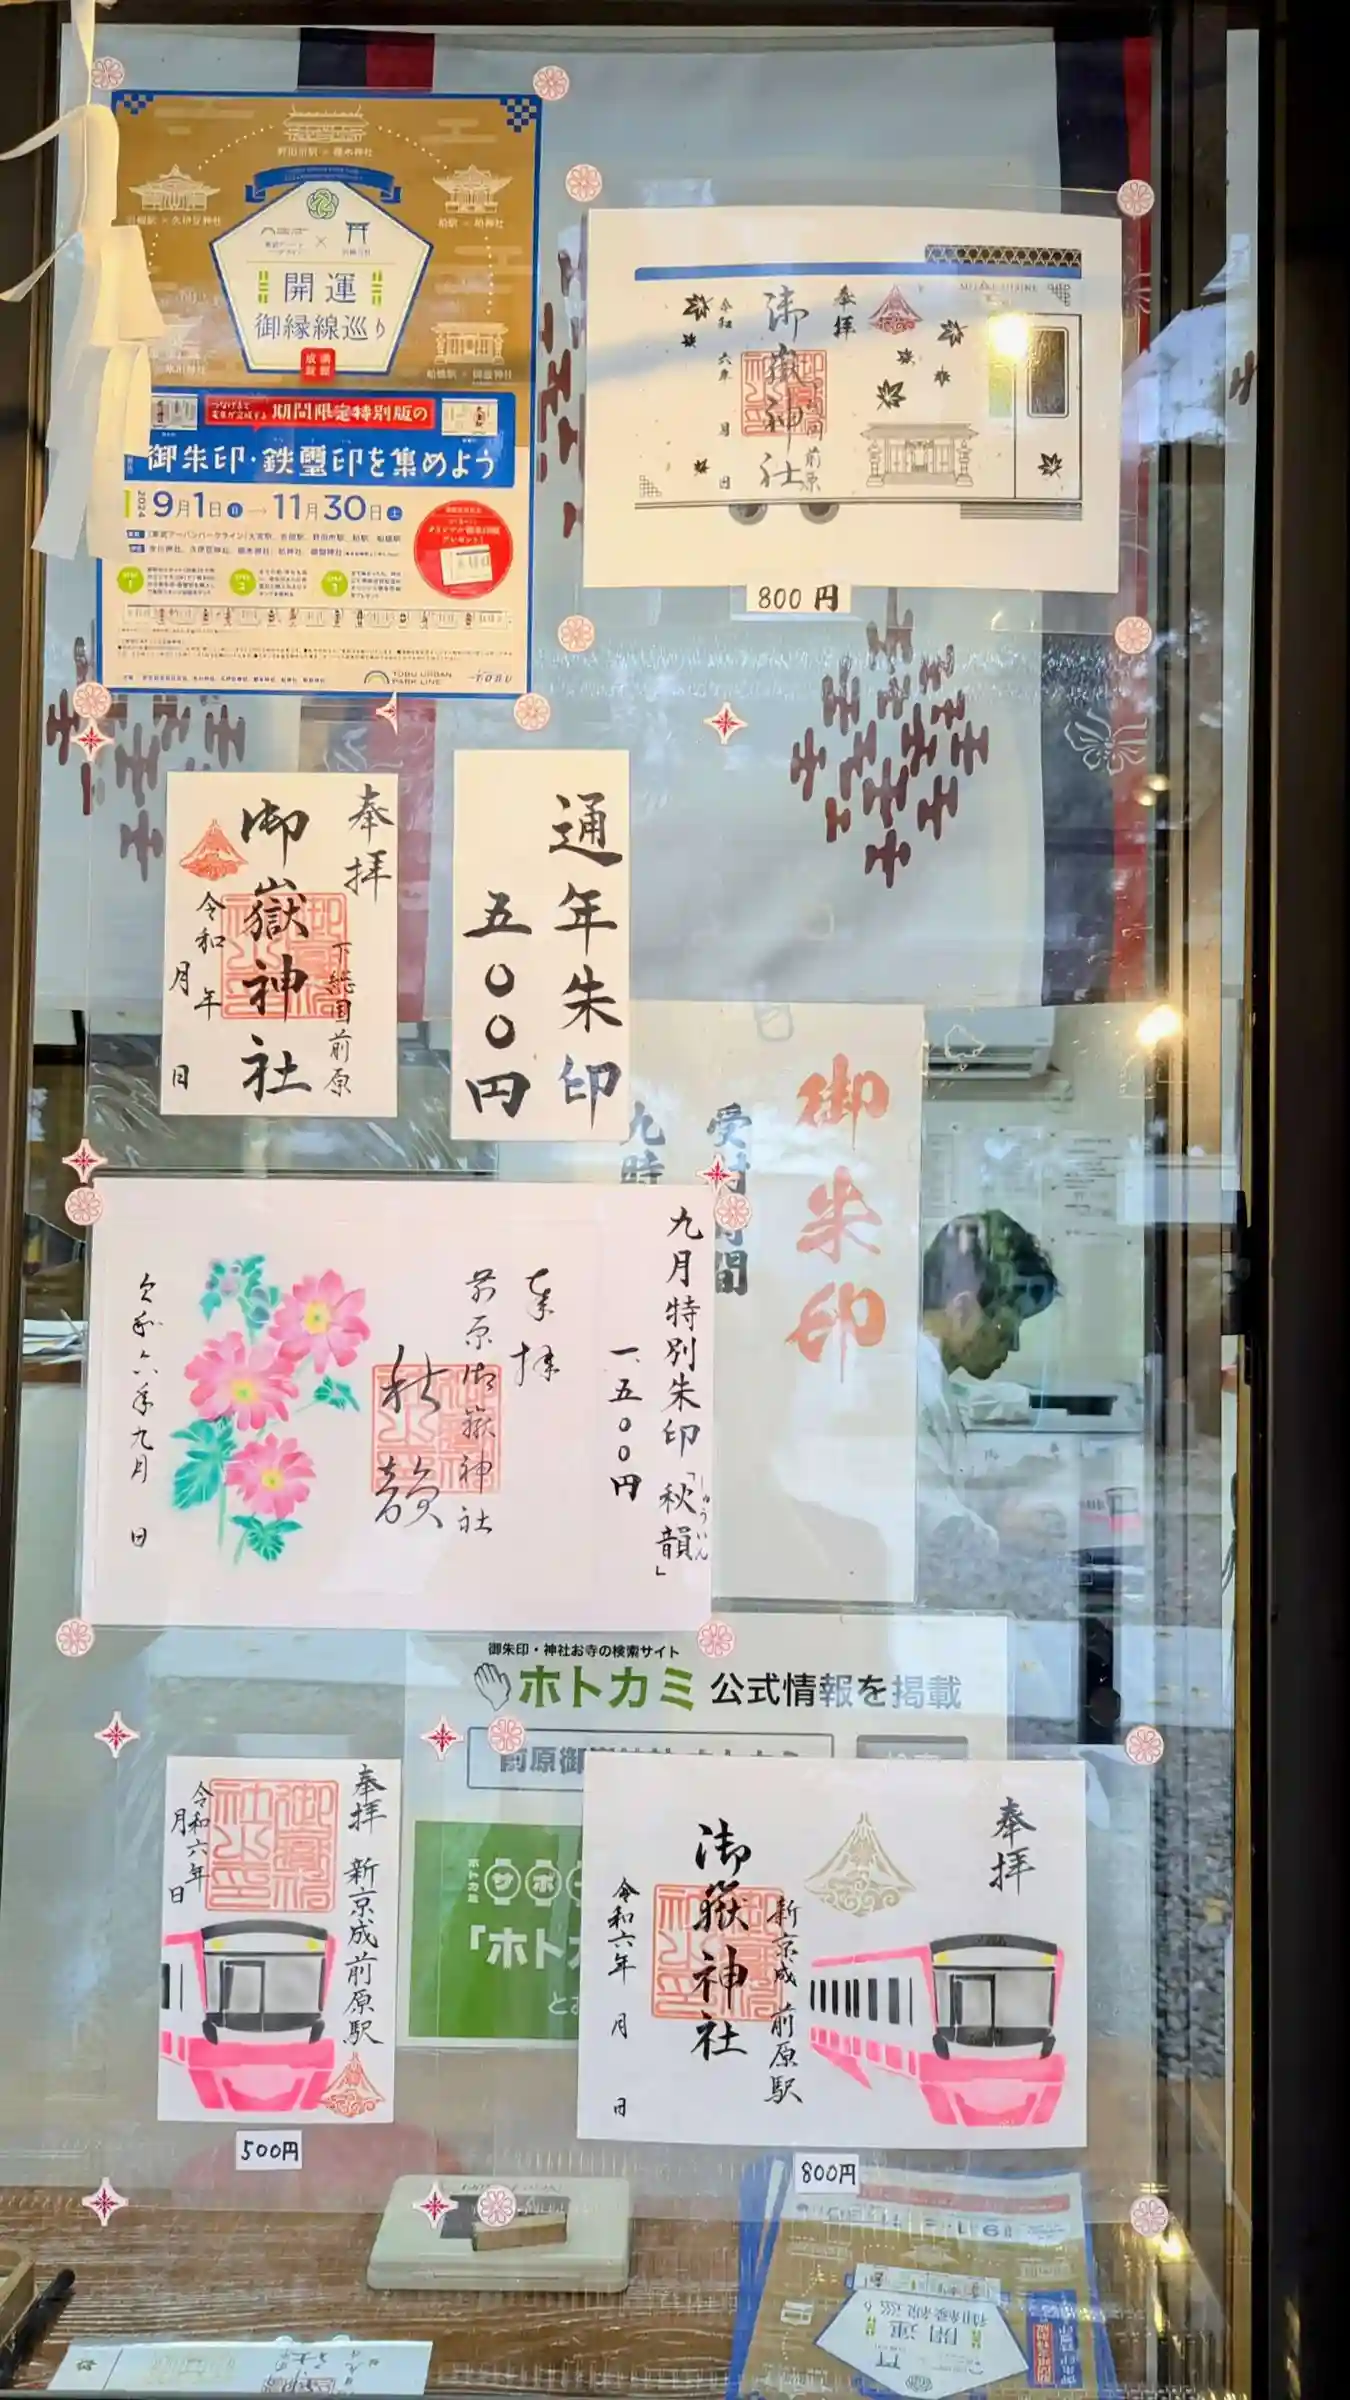 開運
御縁線巡り
期間限定特別版の
御朱印・鉄璽印を集めよう
2024
9月1日→11月30日
STEP 1
STEP 2
TOBU URBAN
PARK LINE
TOBU
奉拝
御嶽神社
前原
令和六年
月
日
800円
奉拝
下総国前原
御嶽神社
令和
年
月
日
通年朱印
五〇〇円
御朱印
受付時間
九時
九月特別朱印「秋韻」
しゅういん
一、五〇〇円
奉拝
前原御嶽神社
秋韻
令和六年九月 日
御朱印・神社お寺の検索サイト
ホトカミ 公式情報を掲載
前原御
奉拝
新京成前原駅
令和六年
月
日
500円
奉拝
新京成 前原駅
御嶽神社
令和六年 月 日
800円
ホトカミ
サポ
「ホトカ